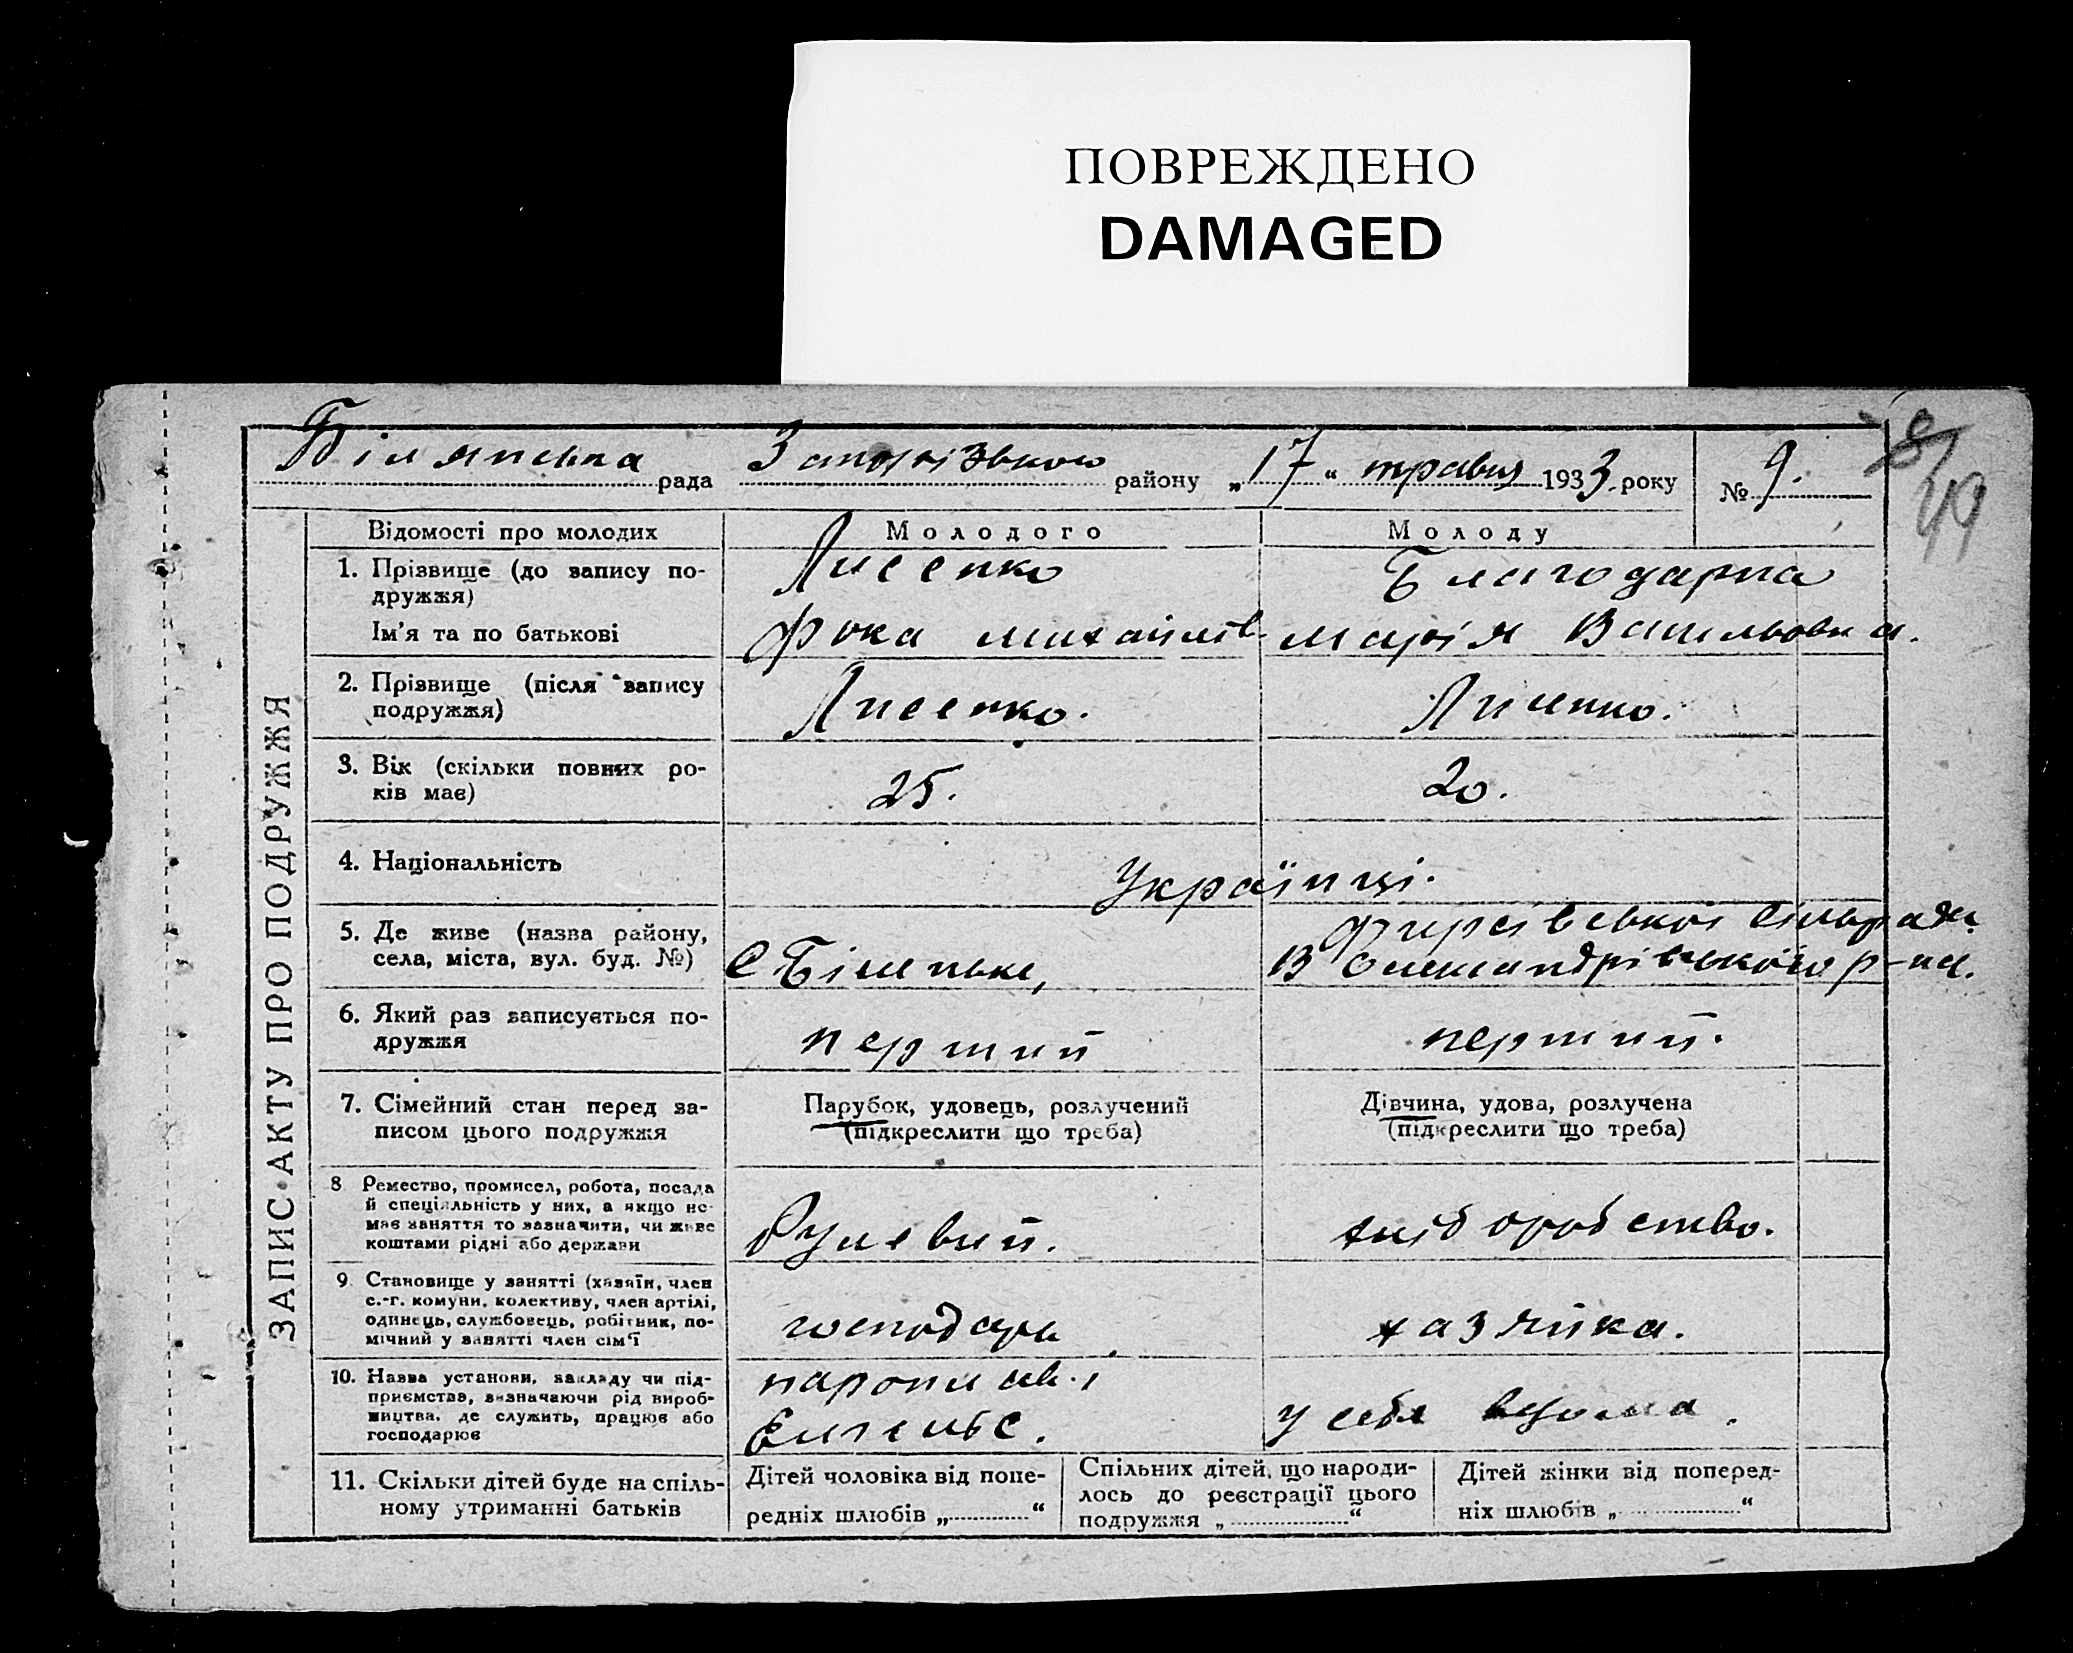 ПОВРЕЖДЕНО
DAMAGED
Білянська рада Запорізького району „17“ травня 1933 року № 9.
49
ЗАПИС АКТУ ПРО ПОДРУЖЖЯ
Відомості про молодих Молодого Молоду
1. Прізвище (до запису по- Лисенко Благодарна
дружжя)
Ім'я та по батькові Фока Михайлів Марія Васильовна.
2. Прізвище (після запису Лисенко. Лисенко.
подружжя)
3. Вік (скільки повних ро- 25. 20.
ків має)
4. Національність Українці.
5. Де живе (назва району, Фирсівської сільради
села, міста, вул. буд. №) С Біленьке, В Олександрівського р-на.
6. Який раз записується по- перший перший.
дружжя
7. Сімейний стан перед за- Парубок, удовець, розлучений Дівчина, удова, розлучена
писом цього подружжя (підкреслити що треба) (підкреслити що треба)
8 Ремество, промисел, робота, посада
й спеціяльність у них, а якщо не-
має заняття то зазначити, чи живе Рулевий. хліборобство.
коштами рідні або держави
9. Становище у занятті (хазяїн, член
с.-г. комуни, колективу, член артілі,
одинець, службовець, робітник, по- господарь хазяйка.
мічний у занятті член сім'ї
10. Назва установи, закладу чи під- пароплав.
приємства, зазначаючи рід вироб-
ництва, де служить, працює або Енгельс. у себя вдома.
господарює
11. Скільки дітей буде на спіль- Дітей чоловіка від попе- Спільних дітей, що народи- Дітей жінки від поперед-
ному утриманні батьків редніх шлюбів „ “ лось до реєстрації цього ніх шлюбів „ “
подружжя „ “